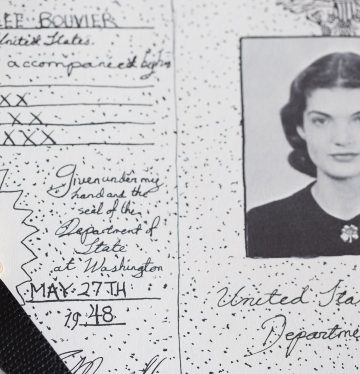 LEE BOUVIER
United States.
a accompanied by
XX
XX
XXX
Given under my
hand and the
seal of the
Department of
State
at Washington
MAY 27TH
19 48
United Sta
Departme